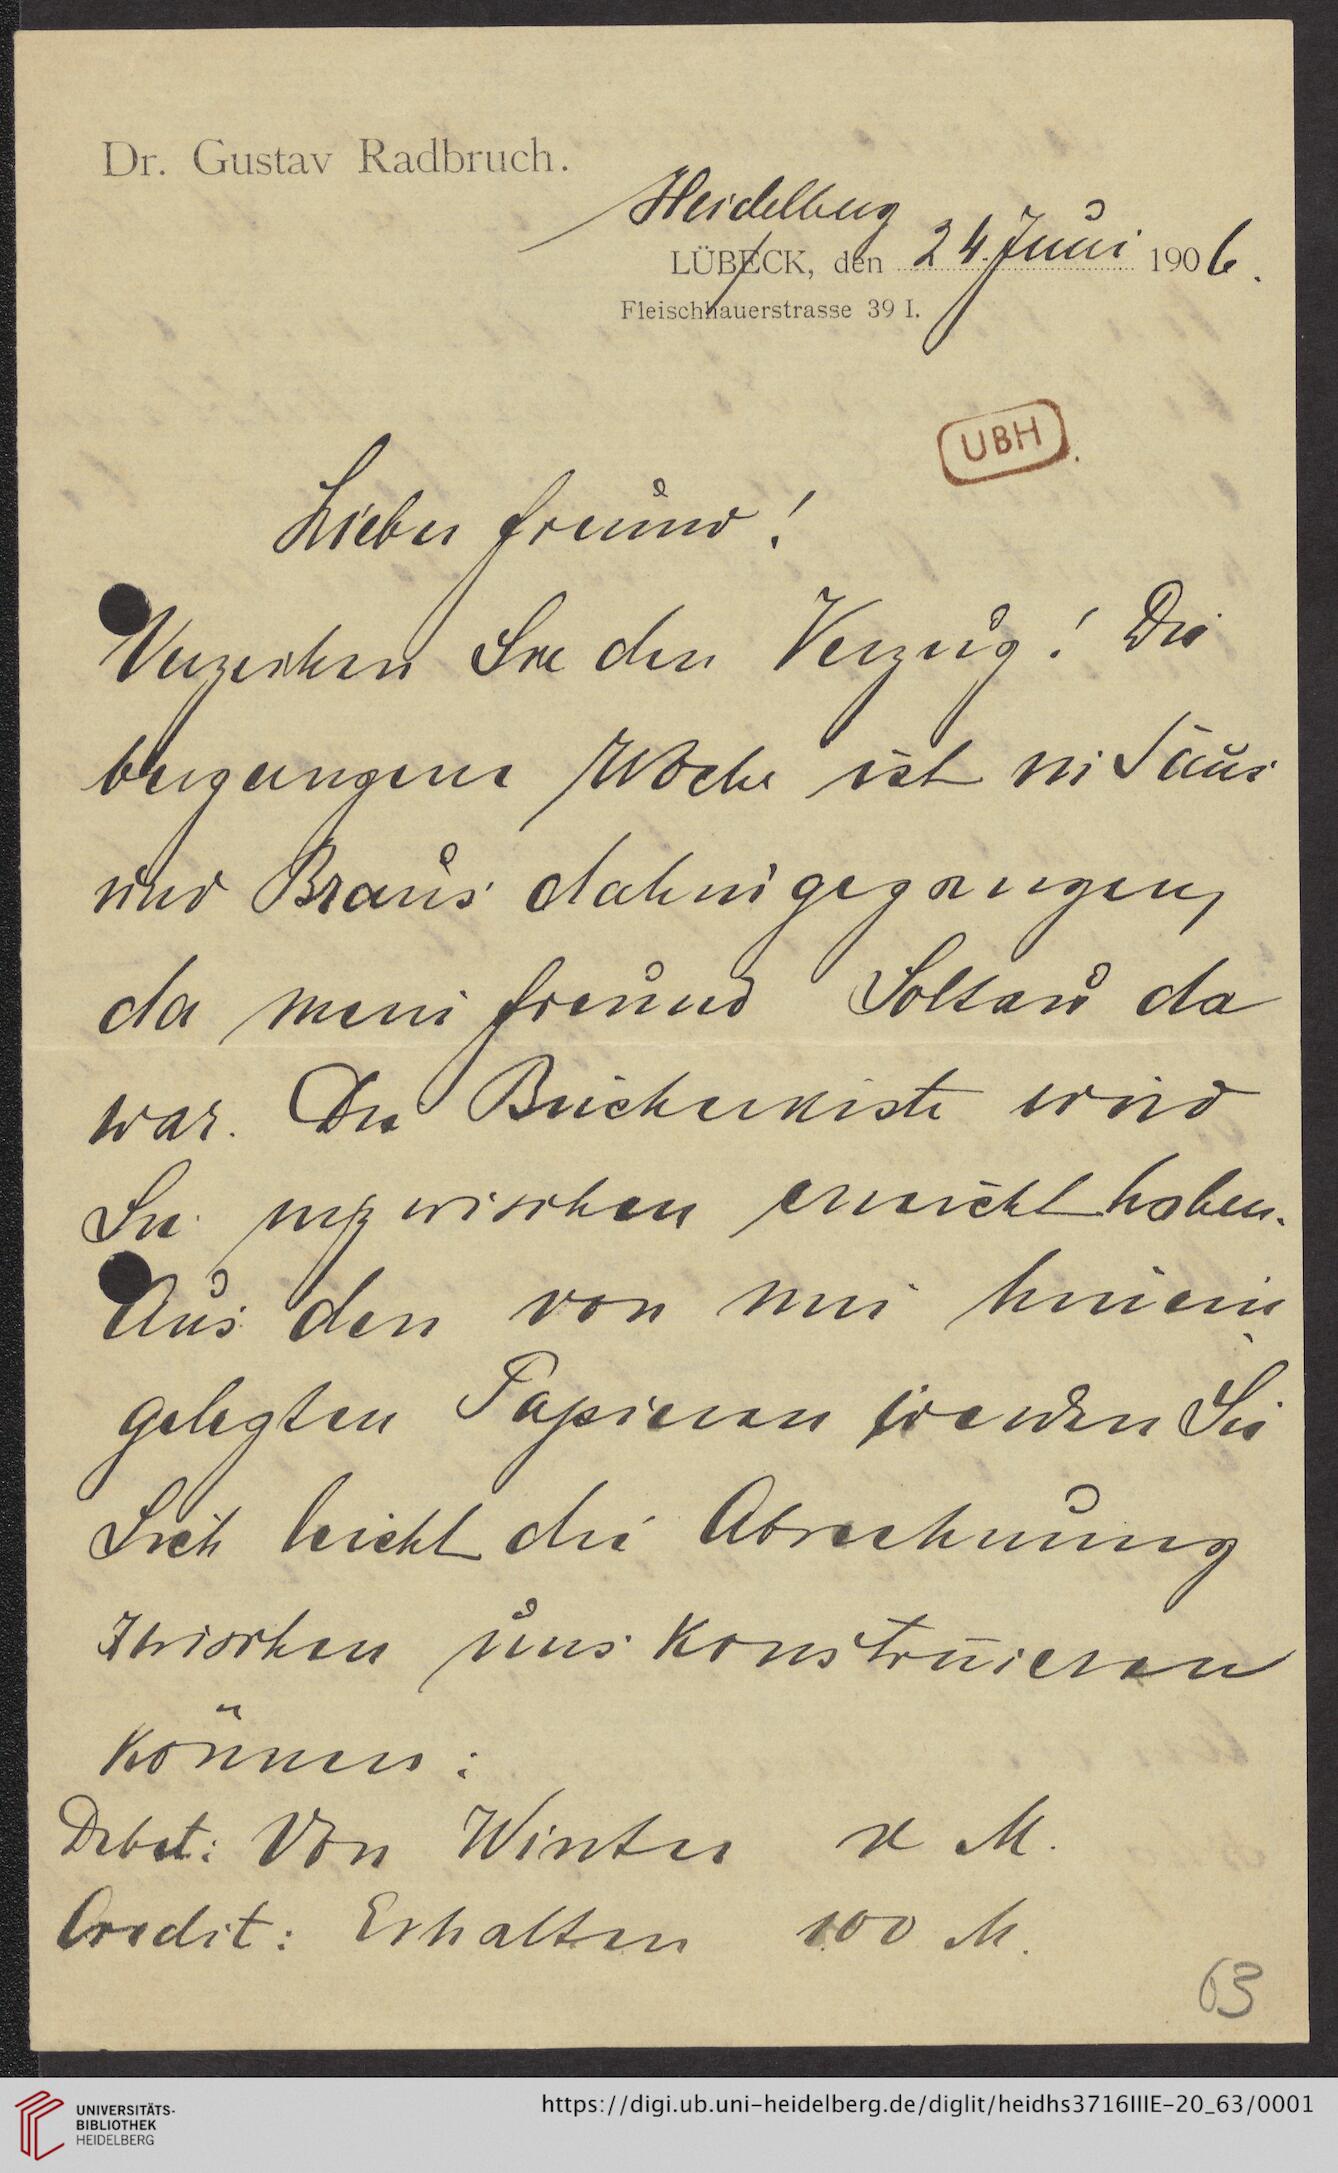 Dr. Gustav Radbruch.
Heidelberg
LÜBECK, den 24. Juni 1906.
Fleischhauerstrasse 39 I.
UBH
Lieber Freund!
Verzeihen Sie den Verzug! Die
vergangene Woche ist in Saus
und Braus dahingegangen,
da mein Freund Soltau da
war. Die Bücherkiste wird
Sie inzwischen erreicht haben.
Aus den von mir hinein
gelegten Papieren werden Sie
Sich leicht die Abrechnung
zwischen uns konstruieren
können:
Debet: Von Winter x M.
Credit: Erhalten 100 M.
63
UNIVERSITÄTS-
BIBLIOTHEK
HEIDELBERG
https://digi.ub.uni-heidelberg.de/diglit/heidhs3716IIIE-20_63/0001